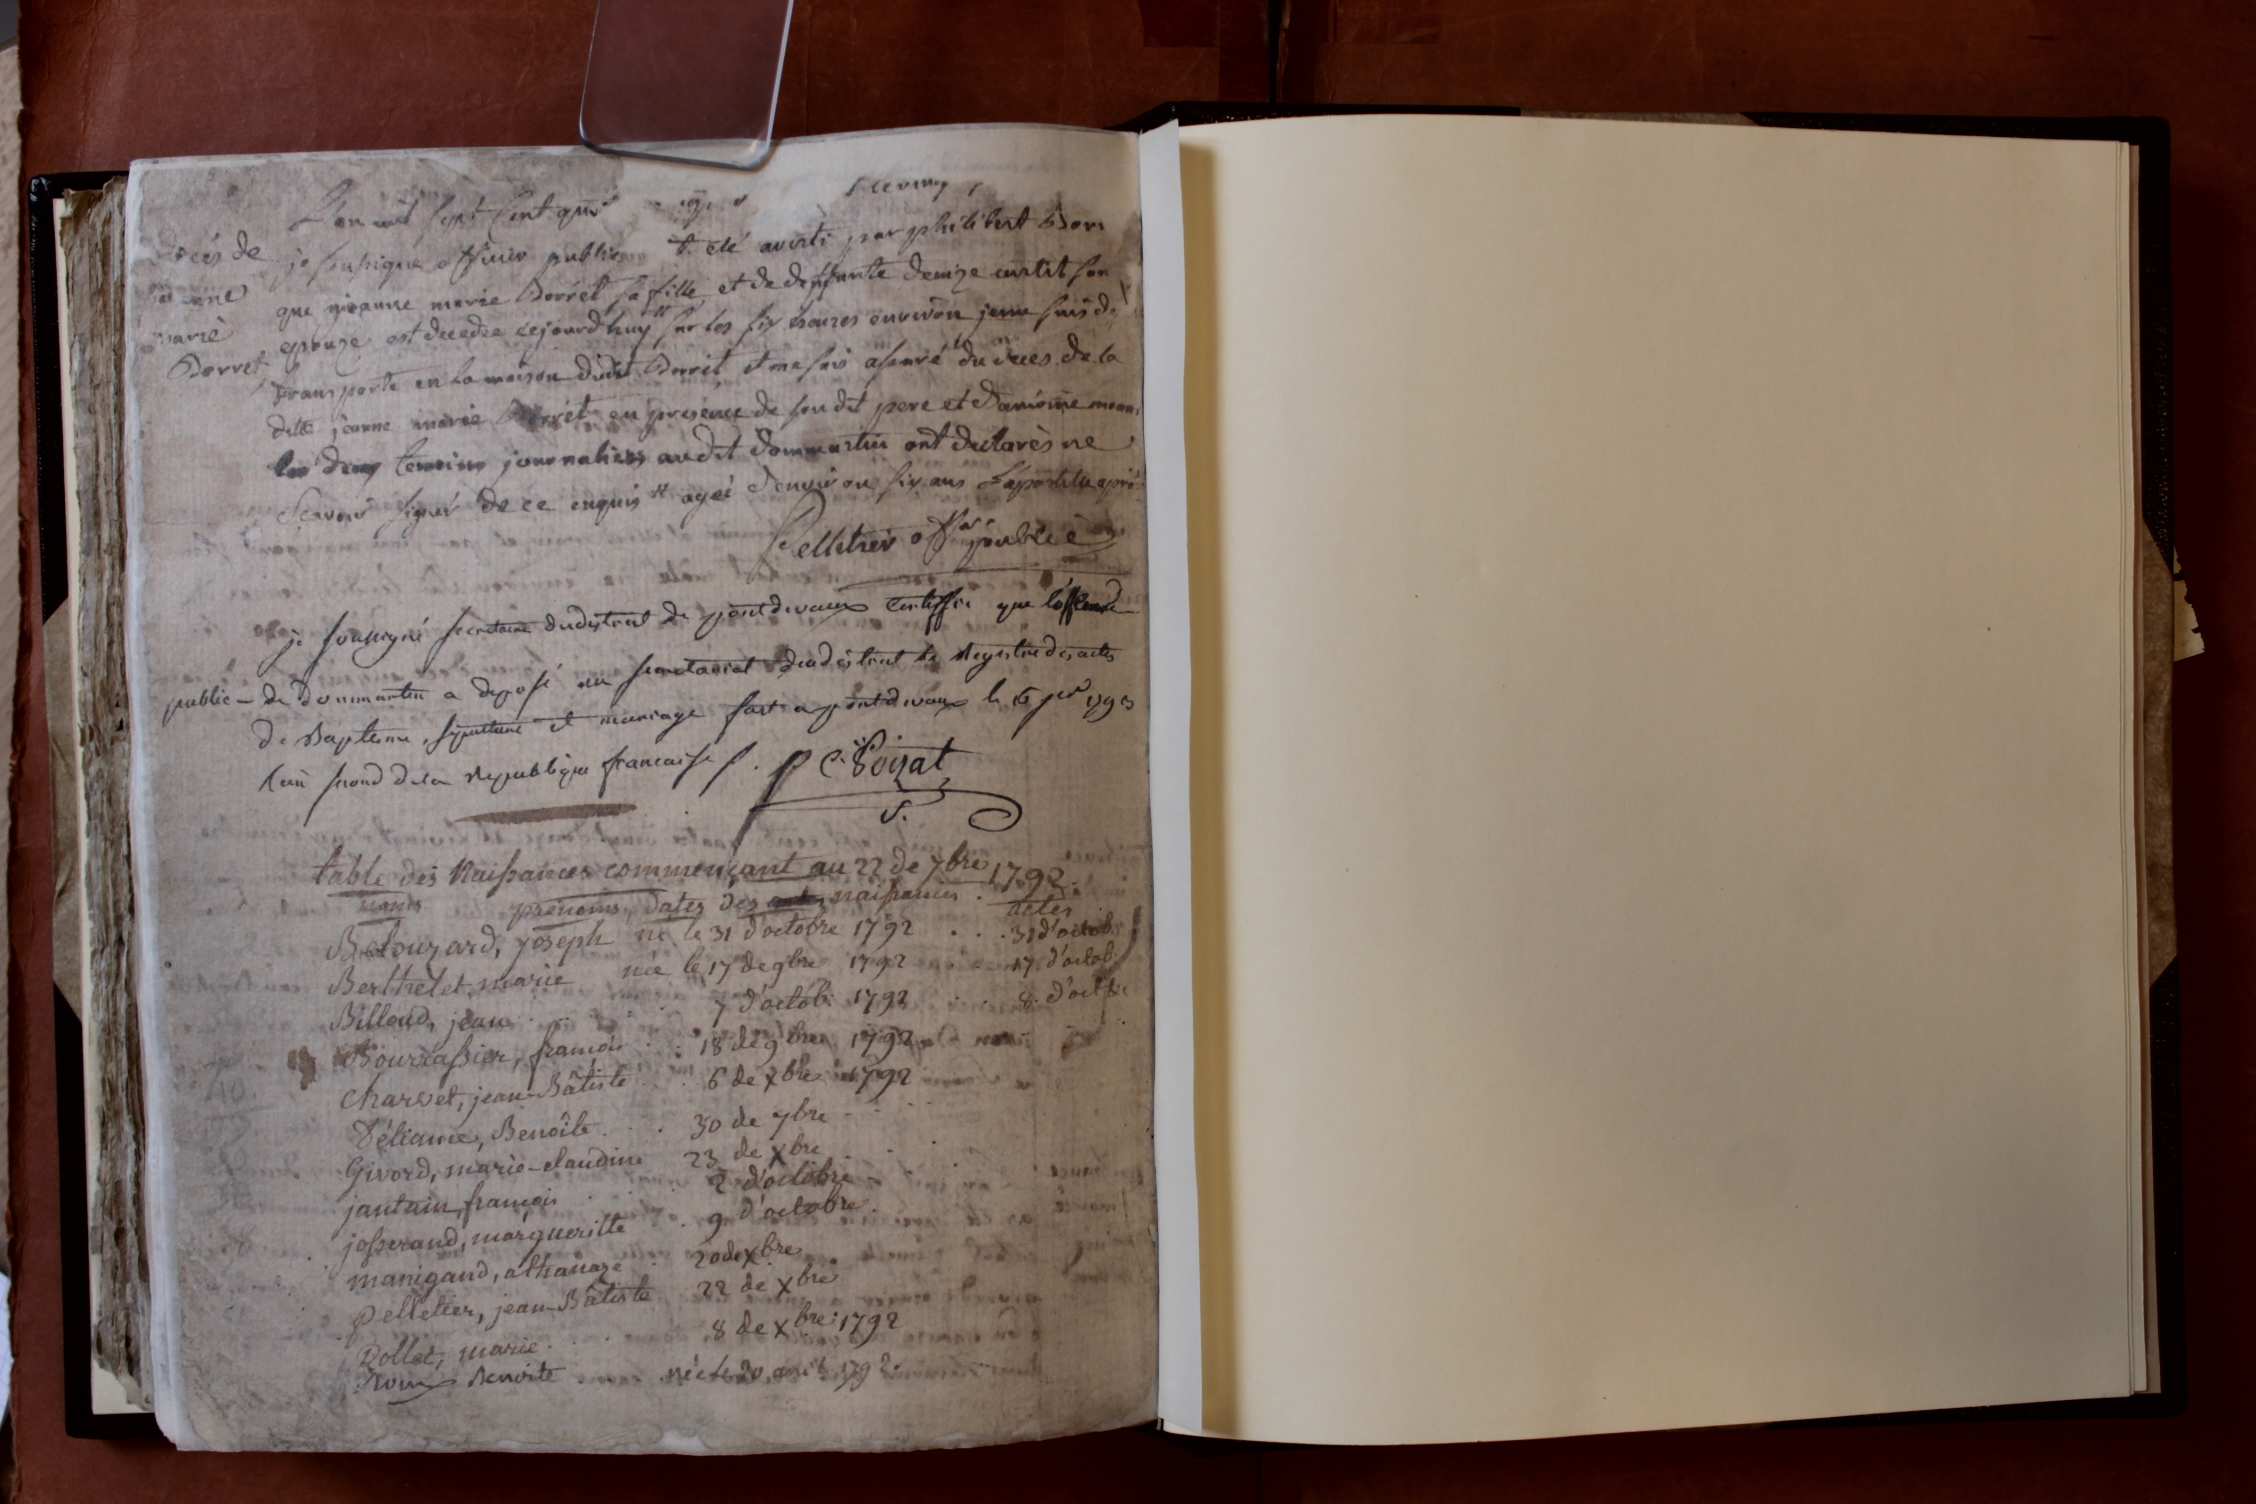 L'an mil sept cent
Decés de
je soussigne officier public été averti par philibert Borr
jeanne
que jeanne marie Borret sa fille et de deffunte denize curtit son
marie
epouze est decedee cejourdhuy sur les six heures environ je me suis de
Borret
transporté en la maison dudit Borret et me suis assuré du deces de la
ditte jeanne marie Borret en presence de son dit pere et
les deux temoins journaliers audit Dommartin ont declarés ne
scavoir signer de ce enquis agée d'environ six ans
Pelletier offer publicè
je soussigné secretaire dudistrict de pontdevaux Certiffie que l'officier
public - de dommartin a deposé au secretariat du district le Registre des actes
de Bapteme, sepulture et mariage fait a pontdevaux le 16 1793
l'an second de la Republique francaise
P C Poizat
S.
table des Naissances commençant au 22 de 7bre 1792.
noms prenoms, dates des naissances. actes
Belouzard, joseph né le 31 d'octobre 1792 . . . 31 d'octob
Berthelet marie née le 17 de 9bre 1792 17 d'octob
Billoud, jean . . . . 7 d'octob: 1792 . . . 8. d'octb
Bourcassier, francois . . 18 de 9bre 1792
Charvet, jean-Bâtiste . . 6 de xbre 1792
Déliance, Benoîte . . . 30 de 7bre
Givord, marie-claudine 23 de xbre
jantain, francois . . . 2 d'octobre
josserand, margueritte . 9 d'octobre.
manigand, athanaze . 20 de xbre
pelletier, jean-Bâtiste 22 de xbre
Pollet, marie . . . 8 de xbre: 1792
Benoite . née le 20 1792.